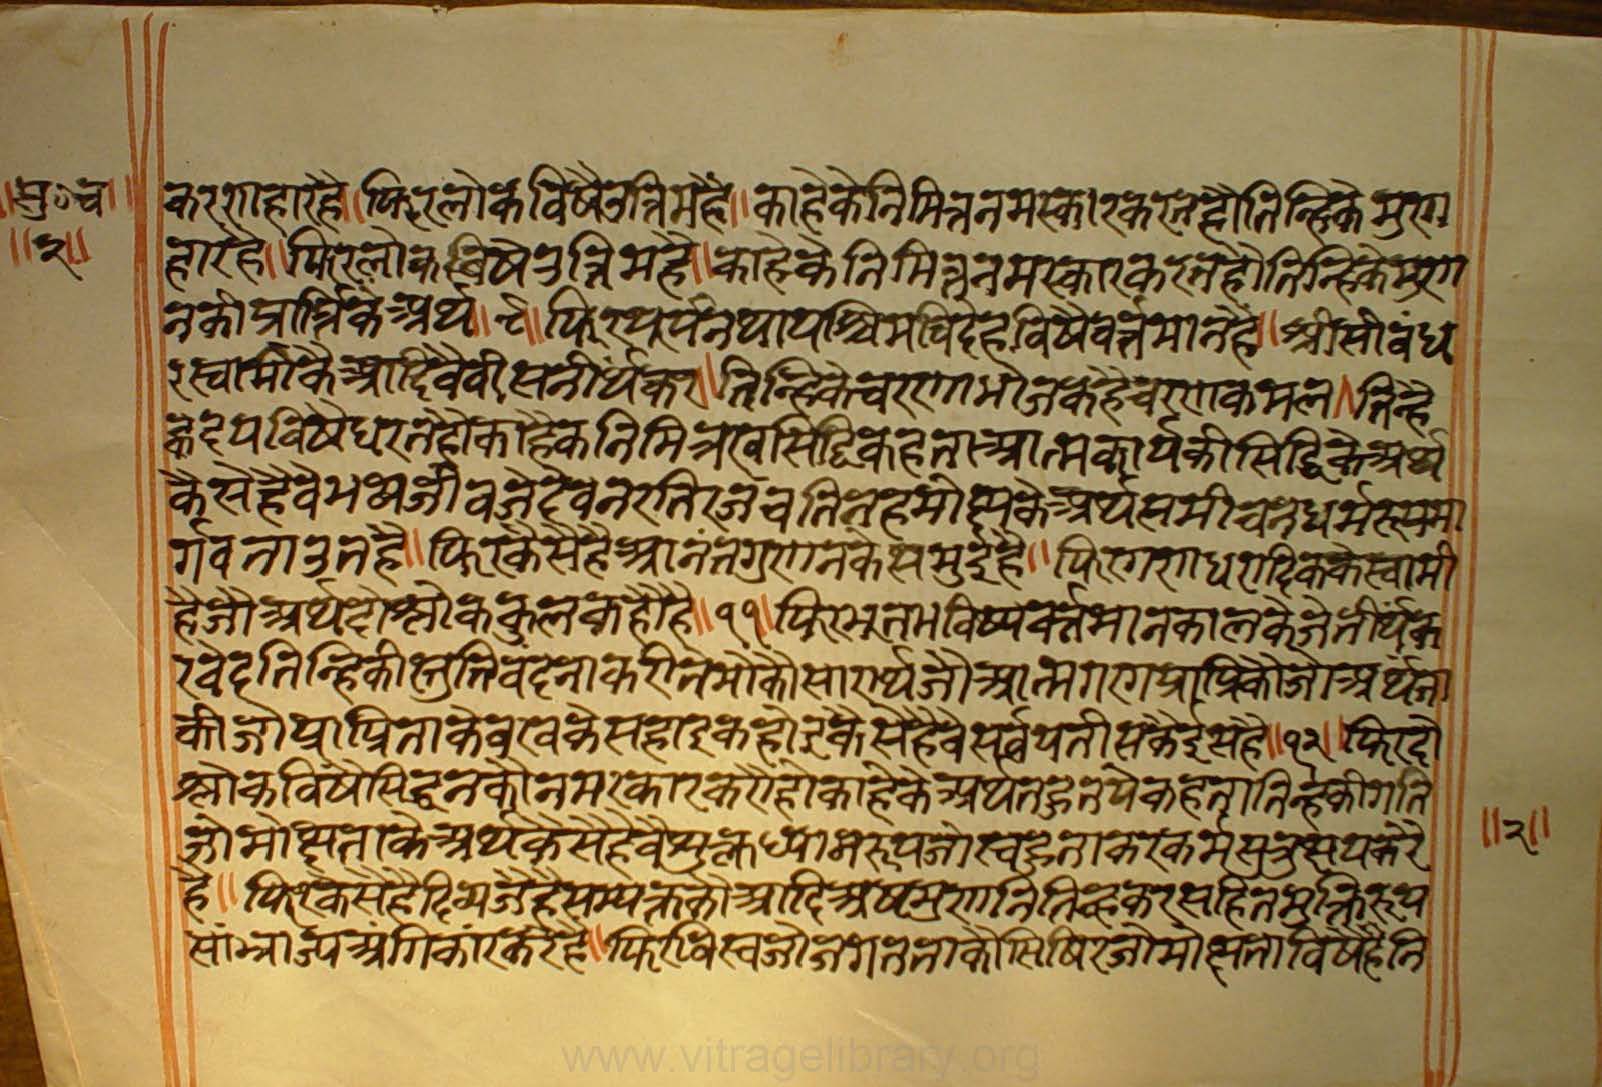 ॥प्र०च॥
॥२॥
करणाहारहै॥फिरलोकविषैउत्तिमहै॥काहेकेनिमित्तनमस्कारकरतहौतिन्हिकेगुण
हारहै॥फिरलोकविषैउत्तिमहै॥काहेकैनिमित्तनमस्कारकरतहौतिन्हिकेगुण
नकीप्राप्तिकेअर्थ॥९॥फिर पश्चिमविदेहविषैवर्त्तमानहै॥श्रीसीमंध
रस्वामीकैआदिवैवीसतीर्थंकर॥तिन्हिकेचरणांभोजकहैचरणकमल॥तिन्है
हृदयविषैधरतहौकाहैकैनिमित्त कहताआत्मकार्यकीसिद्धिकेअर्थ
कैसेहैवैभव्यजीवजेदेवनरतिर्जंचतिनहमोक्षकेअर्थसमीचनधर्मरूपमा
र्गबताउतहै॥फिरकैसैहैआनंतगुणनकेसमुद्रहै॥फिरगणधरादिककेस्वामी
हैजौअर्थदोश्लोककुलकहौहै॥११॥फिरभूतभविष्यवर्त्तमानकालकेजेतीर्थंक
रवेदतिन्हिकीस्तुतिवंदनाकरी जौआत्मगुणप्राप्तिकौजौअर्थता
कीजोप्राप्तिताकै कैसहाइकहोइकैसैहैवै ॥१२॥फिरदो
श्लोकविषैसिद्धनकौनमस्कारकरौहौकाहेकेअर्थ कहतातिन्हकीगति
जोमोक्षताकेअर्थकैसैहैवैशुक्लध्यानरूपजो करकर्मसत्रु
है॥फिरकैसैहै सम्यक्तकौआदिअष्टगुणनितिन्हकरसहितमुक्तिरूप
सांम्राज्यअंगिकारकरैहै॥फिरविस्वजोजगतताकौसिषिरजोमोक्षताविषैहैति
॥२॥
www.vitragelibrary.org